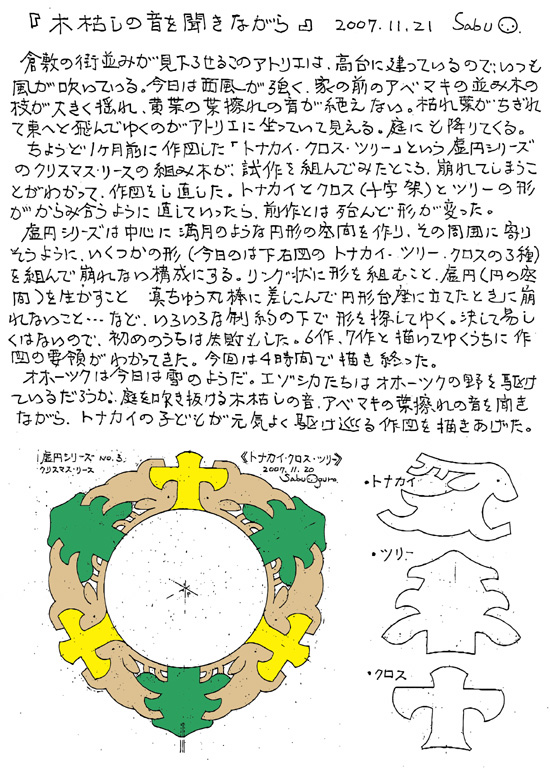 『木枯しの音を聞きながら』 2007.11.21 Sabu
倉敷の街並みが見下ろせるこのアトリエは、高台に建っているので、いつも
風が吹いている。今日は西風が強く、家の前のアベマキの並み木の
枝が大きく揺れ、黄葉の葉擦れの音が絶えない。枯れ葉がちぎれ
て東へと飛んでゆくのがアトリエに坐っていて見える。庭にも降りてくる。
ちょうど1ヶ月前に作図した「トナカイ・クロス・ツリー」という虚円シリーズ
のクリスマス・リースの組み木が、試作を組んでみたところ、崩れてしまうこ
とがわかって、作図をし直した。トナカイとクロス(十字架)とツリーの形
がからみ合うように直していったら、前作とは殆んど形が変った。
虚円シリーズは中心に満月のような円形の空間を作り、その周囲に寄り
そうように、いくつかの形(今日のは下右図のトナカイ・ツリー・クロスの3種)
を組んで崩れない構成にする。リング状に形を組むこと、虚円(円の空
間)を生かすこと 真ちゅう丸棒に差しこんで円形台座に立てたときに崩
れないこと…など、いろいろな制約の下で形を探してゆく。決して易し
くはないので、初めのうちは失敗もした。6作、7作と描いてゆくうちに作
図の要領がわかってきた。今回は4時間で描き終った。
オホーツクは今日は雪のようだ。エゾシカたちはオホーツクの野を駆け
ているだろうか。庭を吹き抜ける木枯しの音、アベマキの葉擦れの音を聞き
ながら、トナカイの子どもが元気よく駆け巡る作図を描きあげた。
虚円シリーズ NO.3.
クリスマス・リース
《トナカイ・クロス・ツリー》
2007.11.20
Sabu Oguro.
・トナカイ
・ツリー
・クロス